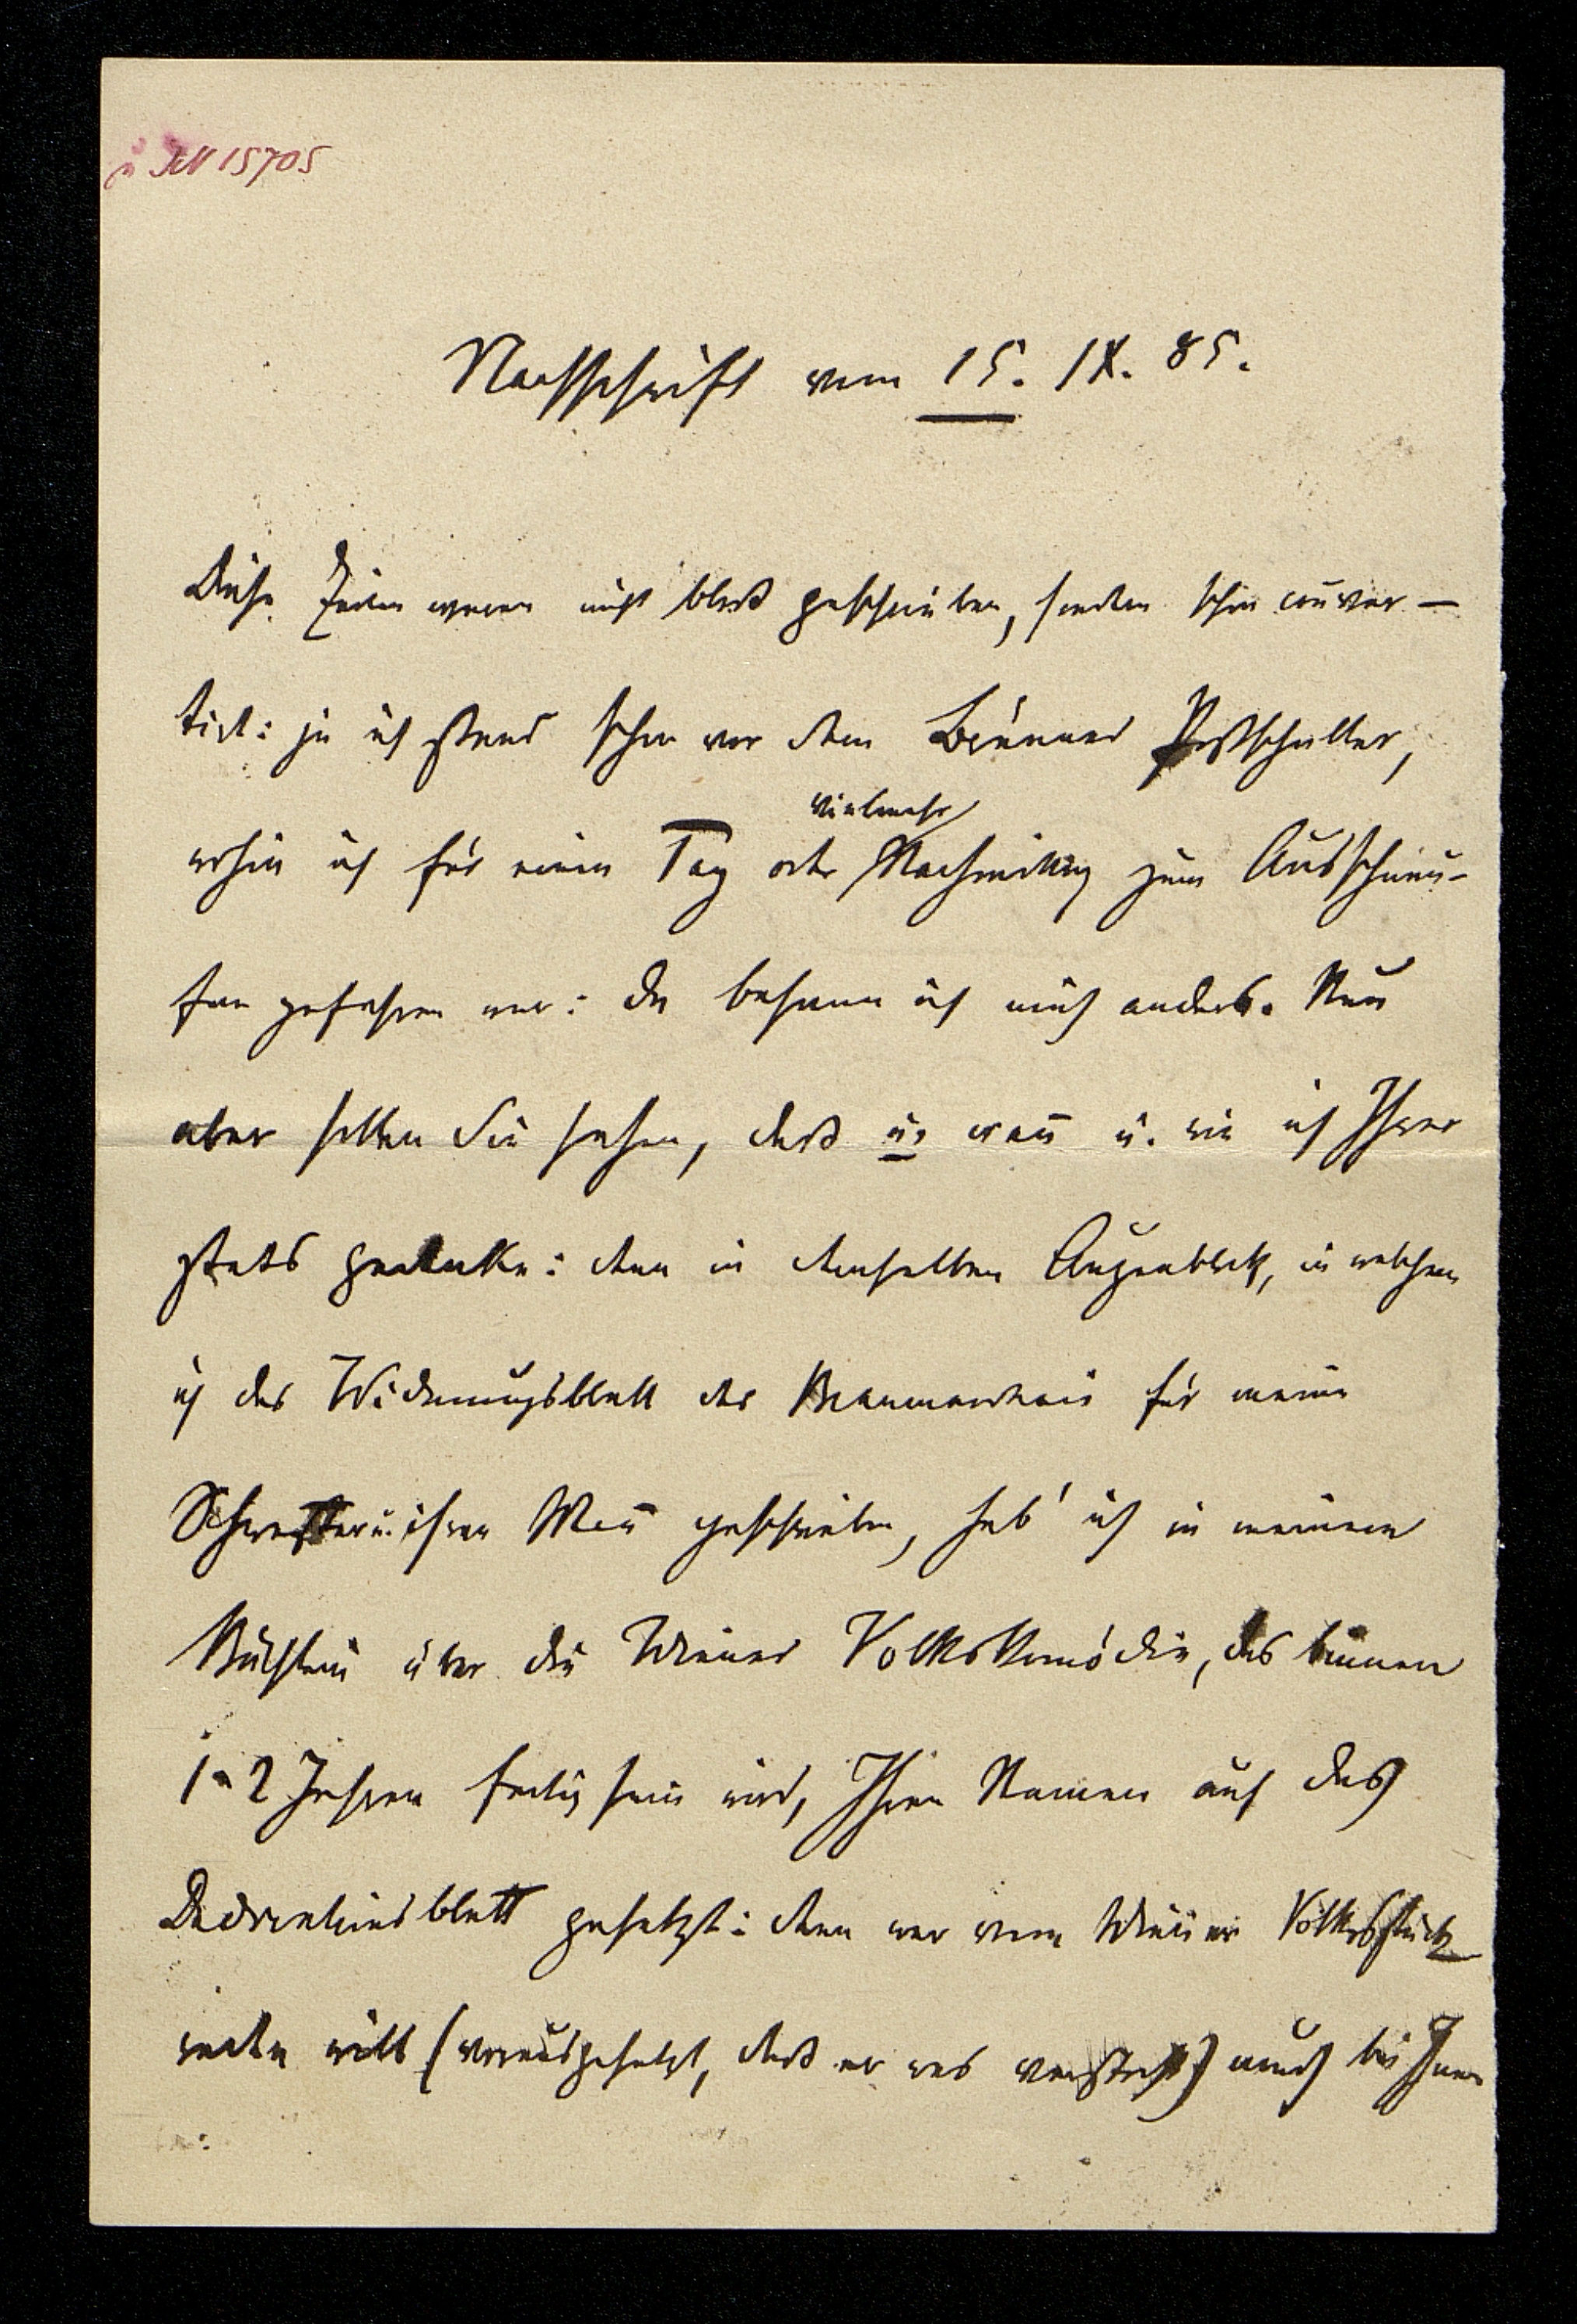 JN 15705
Nachschrift vom 15. IX. 85.
Diese Zeilen waren nicht bloß geschrieben, sondern schon couver-
tirt: ja ich stand schon vor dem Brünner Postschalter,
wohin ich für einen Tag oder vielmehr Nachmittag zum Ausschnau-
fen gefahren war: da besann ich mich anders. Nun
aber sollen Sie sehen, daß u. wann u. wie ich Ihrer
stets gedenke: denn in demselben Augenblick, in welchem
ich das Widmungsblatt des für meine
Schwester u. ihren Mann geschrieben, hab' ich in meinem
Büchlein über die Wiener Volkskomödie, das binnen
1-2 Jahren fertig sein wird, Ihren Namen auf das
Dedicationsblatt gesetzt: denn wer vom Wiener Volksstück
reden will (vorausgesetzt, daß er was versteht) muß bei Ihnen